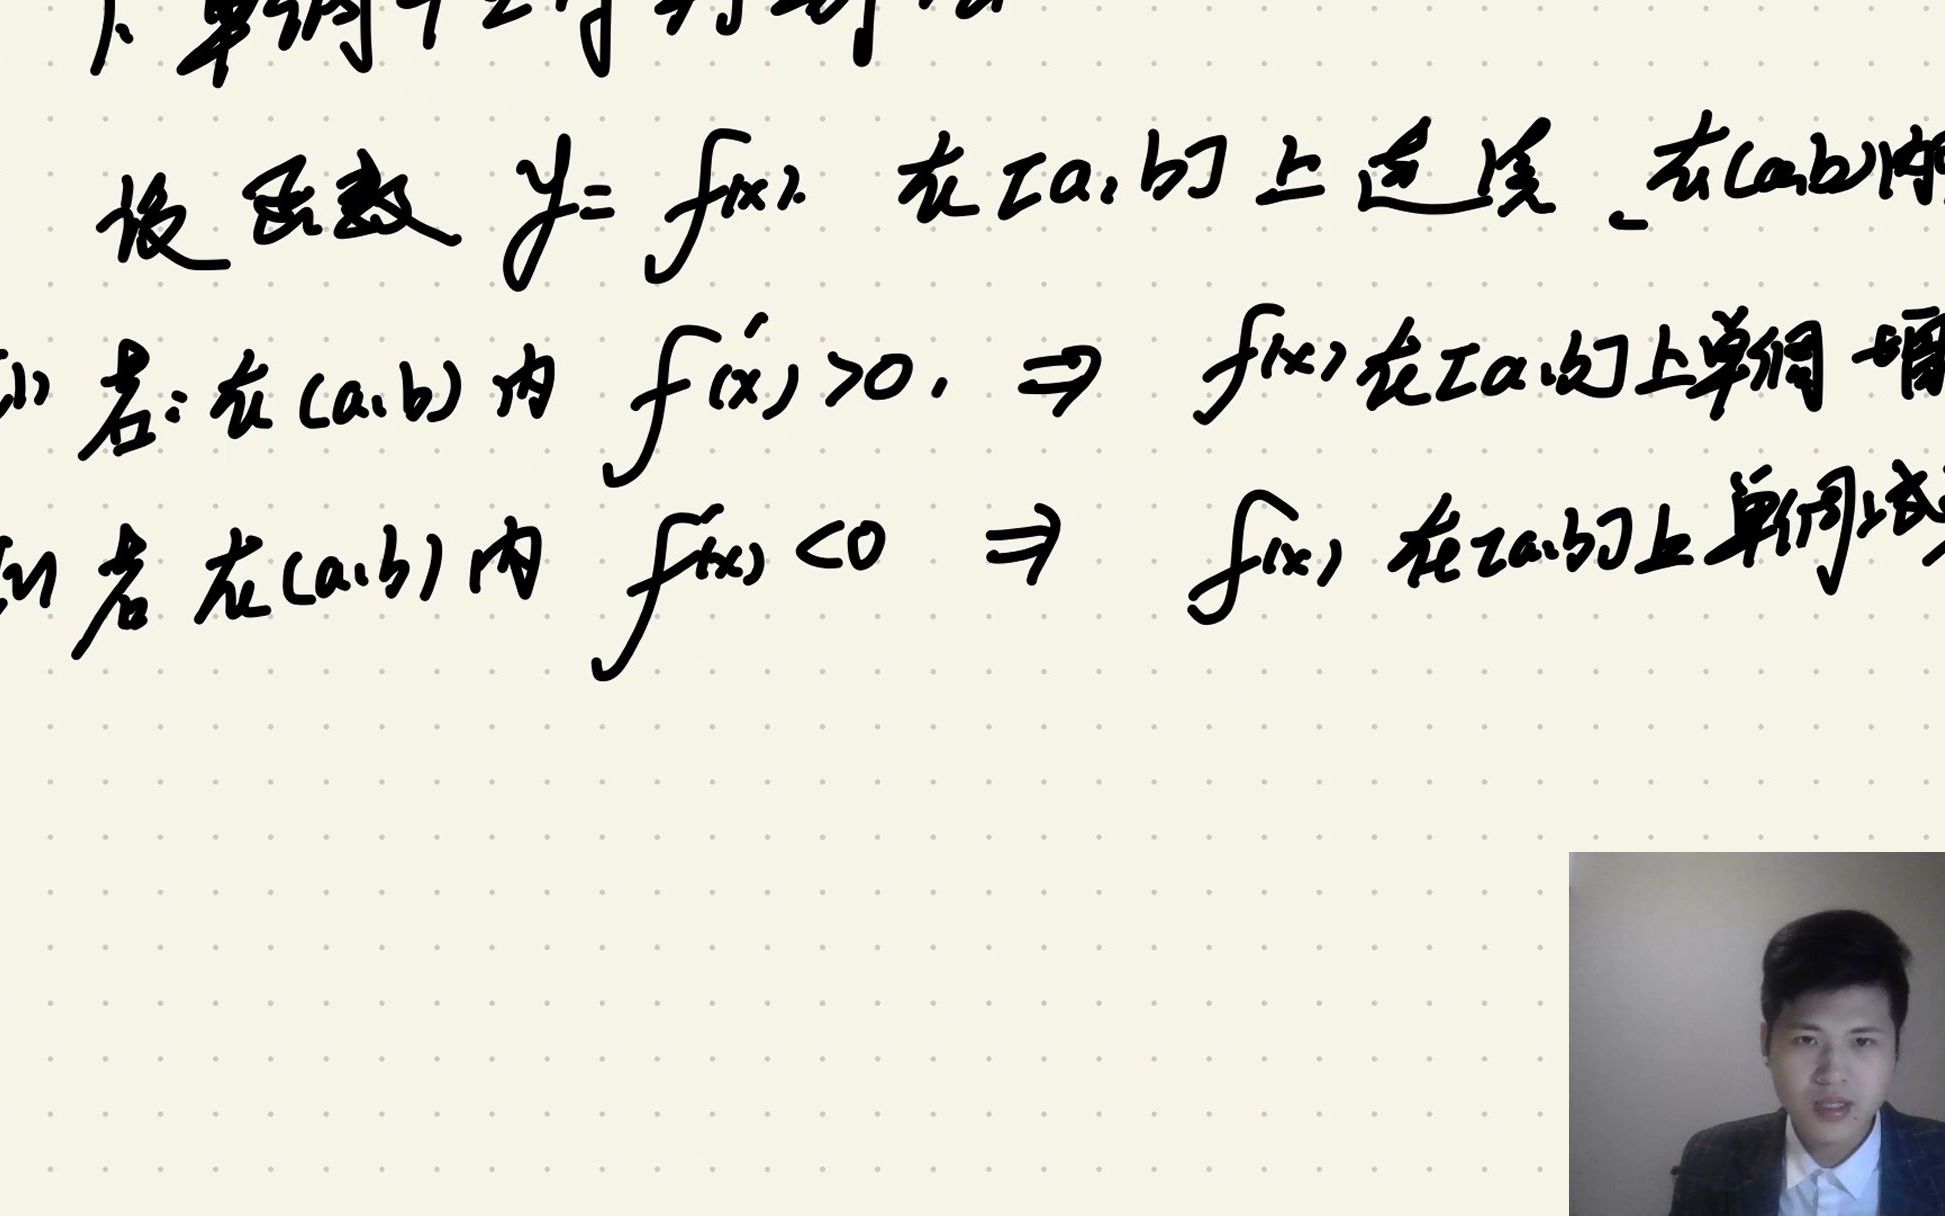 1. 单调性的判断法
设函数 y= f(x). 在[a,b]上连续、在(a,b)内
(1) 若:在(a,b)内 f'(x)>0, ⇒ f(x)在[a,b]上单调增
(2) 若 在(a,b)内 f'(x)<0 ⇒ f(x) 在[a,b]上单调减